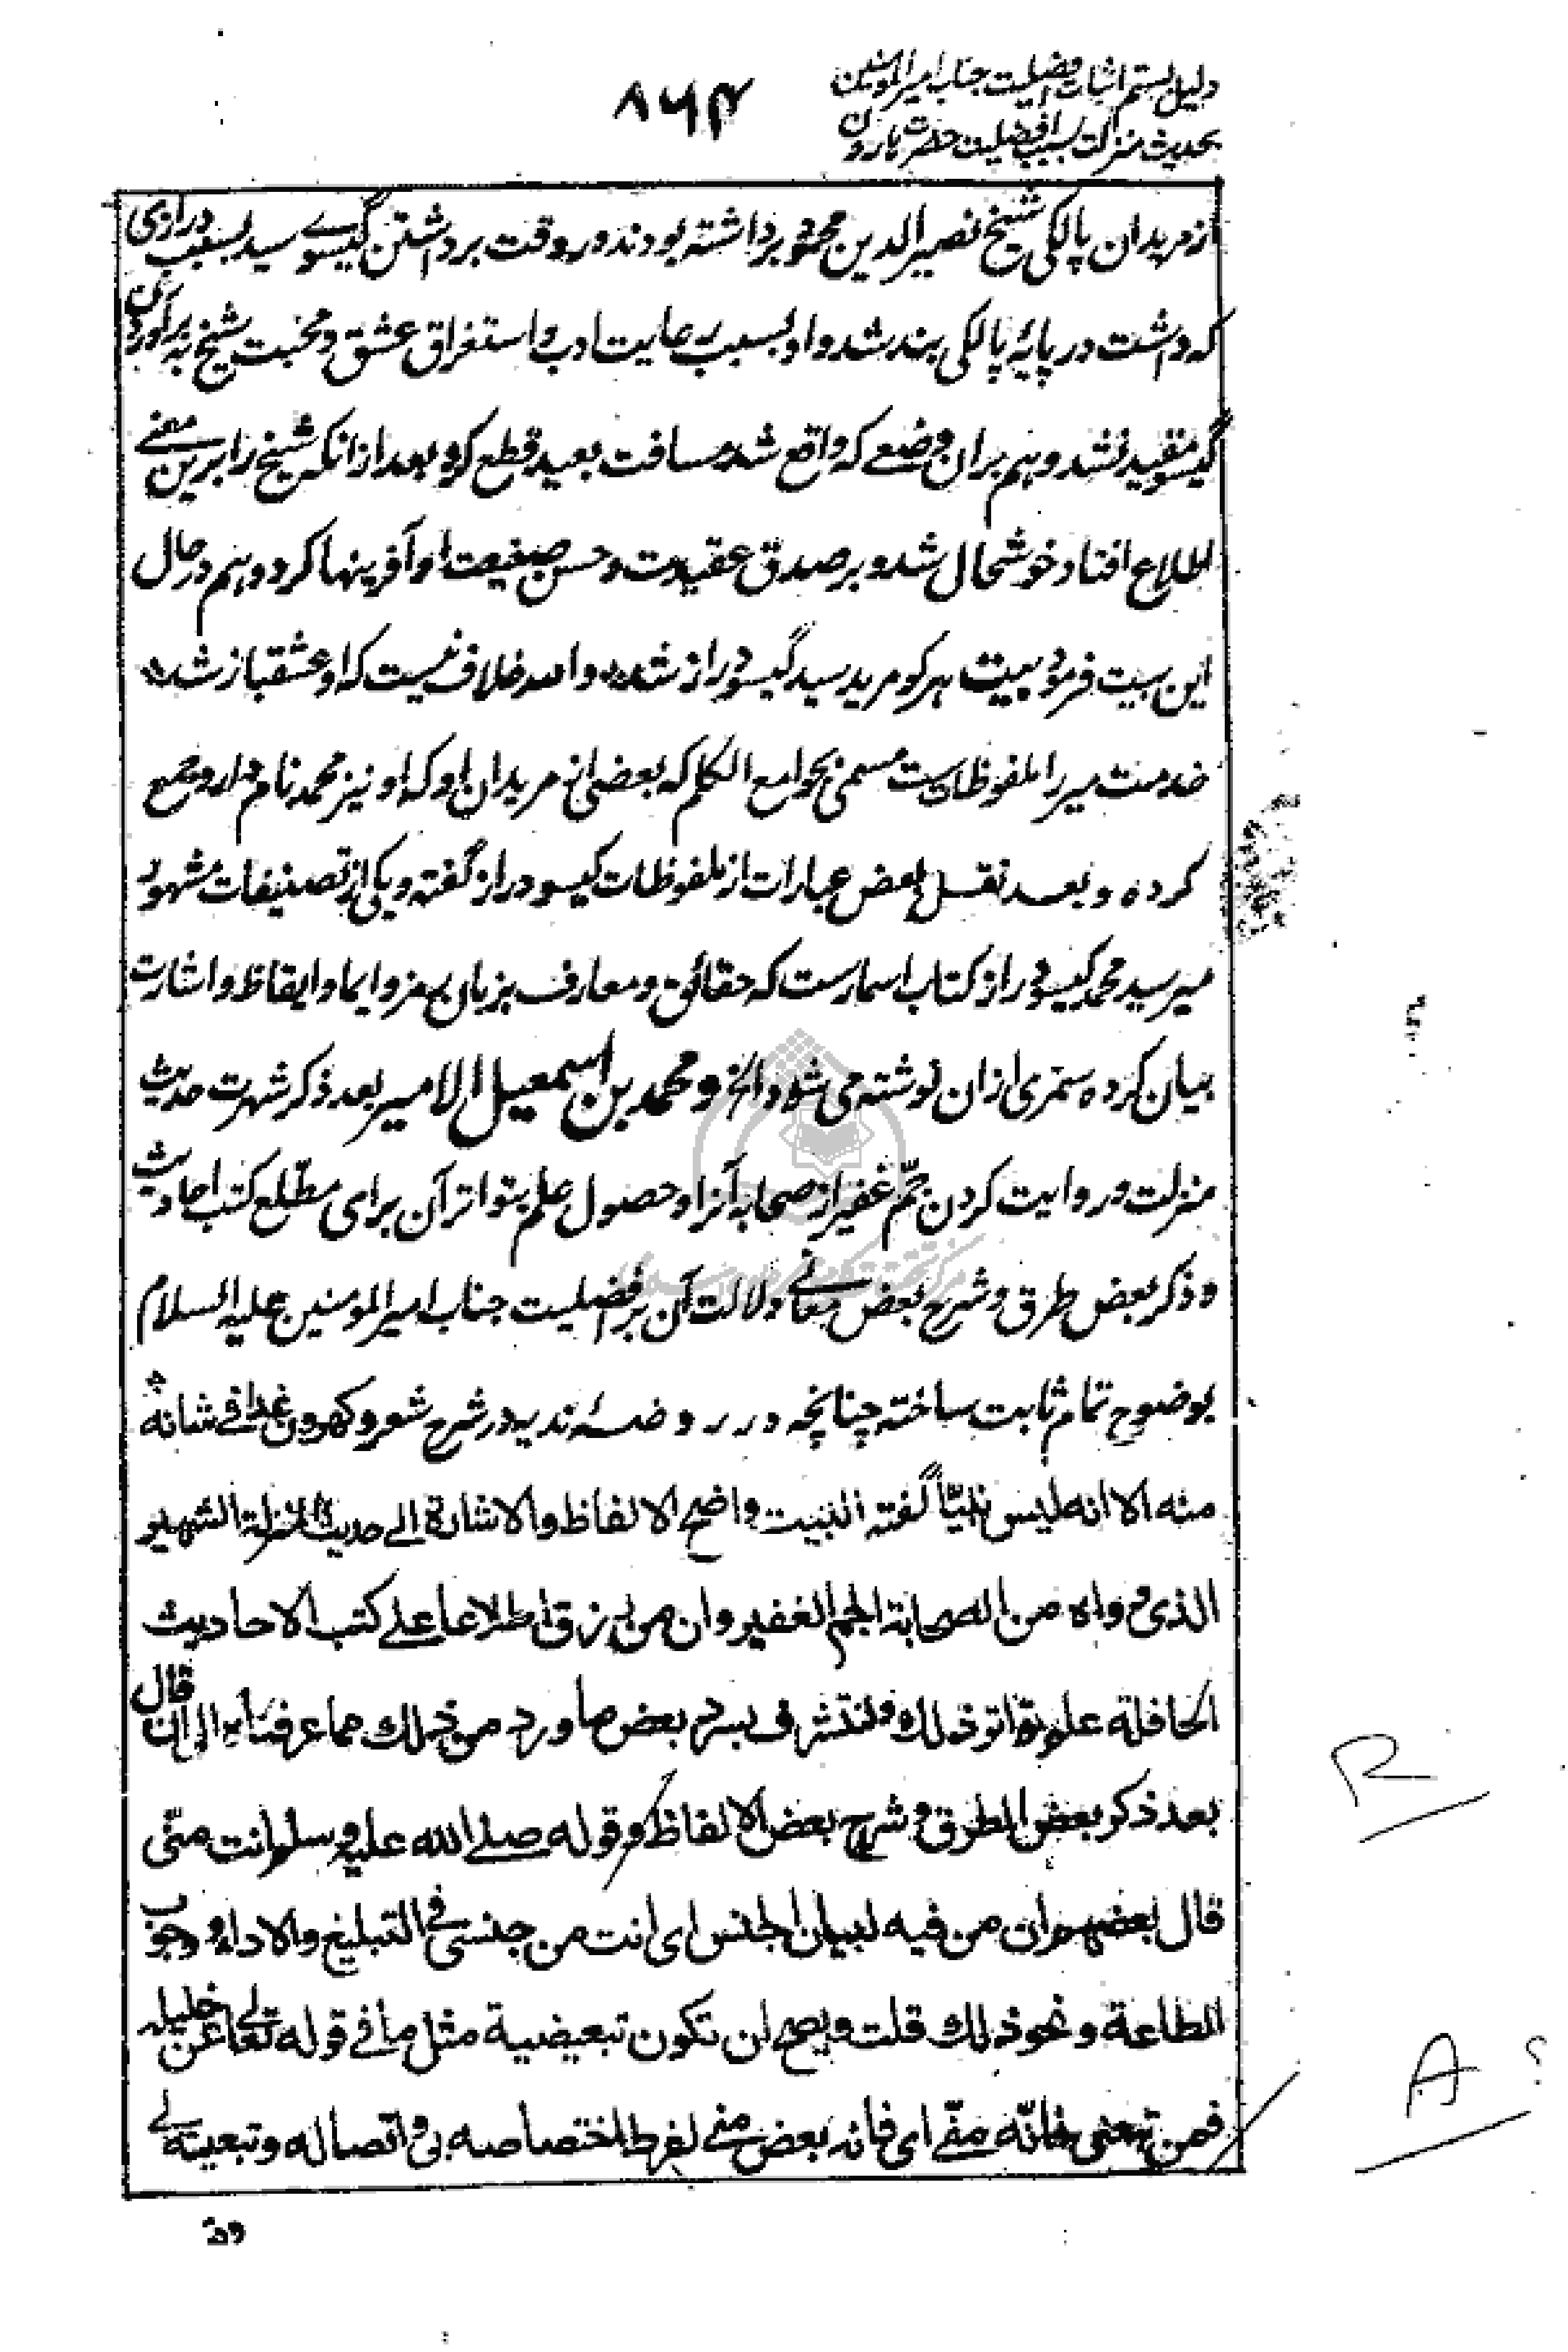 دلیل بستم اثبات افضلیت جناب امیرالمومنین
بحدیث منزلت بسبب افضلیت حضرت هارون
۸۶۴
از مریدان پالکی شیخ نصیرالدین محمود برداشته بودند و در وقت برداشتن گیسوے سید بسبب درازی
که داشت در پایهٔ پالکی بند شد و او بسبب رعایت ادب و استغراق عشق و محبت شیخ به برآوردن
گیسو مقید نشد و هم بران وضعے که واقع شد مسافت بعید قطع کرد بعد از انکه شیخ را برین معنے
اطلاع افتاد خوشحال شد و بر صدق عقیدت و حسن صنیعت او آفرینها کرد و هم در حال
این بیت فرمود بیت هر کو مرید سید گیسو دراز شد واللہ خلاف نیست که او عشقباز شد
خدمت میر را ملفوظات ست مسمی بجوامع الکلم که بعضی از مریدان او که او نیز محمد نام دارد جمع
کرده و بعد نقل بعض عبارات از ملفوظات گیسو دراز گفته و یکی از تصنیفات مشهور
میر سید محمد گیسو دراز کتاب اسمارست که حقائق و معارف بزبان رمز و ایما و ایقاظ و اشارت
بیان کرده سمری ازان نوشته می شود الخ و محمد بن اسمعیل الامیر بعد ذکر شهرت حدیث
منزلت و روایت کردن جمّ غفیر از صحابه آنرا و حصول علم بتواتر آن برای مطّلع کتب احادیث
و ذکر بعض طرق و شرح بعض معانے دلالت آن بر افضلیت جناب امیر المومنین علیه السلام
بوضوح تمام ثابت ساخته چنانچه در روضهٔ ندیه در شرح شعر و کهرون غدا فے شانه
منه الا انه لیس نبیّاً گفته البیت واضح الالفاظ والاشارة الی حدیث المنزلة الشهیر
الذی رواه من الصحابة الجم الغفیر وان من لم رزق اطلاعا علے کتب الاحادیث
الحافلة علم تواتر ذلك ولنتشرف بسرد بعض ما ورد من ذلك مما عرفناه الی ان قال
بعد ذکر بعض الطرق و شرح بعض الالفاظ و قوله صلے الله علیه وسلم انت منّی
قال بعضهم ان من فیه لبیان الجنس ای انت من جنسی فی التبلیغ والاداء و وجوب
الطاعة و نحو ذلك قلت و یصح ان تکون تبعیضیة مثل ما فی قوله تعالی عن خلیله
فمن تبعنی فانّه منّے ای فانه بعض منے لفرط اختصاصه بی و اتّصاله و تبعیته لے
R
A ؟